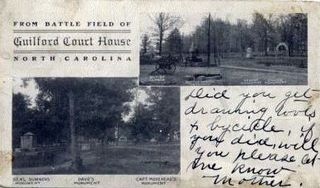 FROM BATTLE FIELD OF
Guilford Court House
NORTH CAROLINA
GENL SUMNERS
MONUMENT
DAVIE'S
MONUMENT
CAPT MOREHEAD'S
MONUMENT
Did you get
drawing tools
& bycicle, if
you did, will
you please let
me know
Mother.